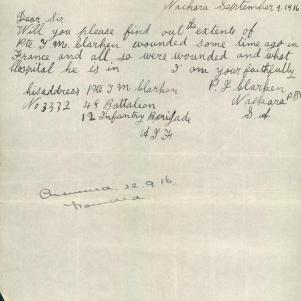 Naikara September 9. 1916
Dear Sir
Will you please find out the extents of
Pte T M Clarken wounded some time ago in
France and all, so were wounded and what
Hospital he is in I am your faithfully
his address Pte T M Clarken P. J Clarken
No 3332 48 Battalion Naikara P.O
12 Infantry Berigade S. A
A I F
22.9.16.